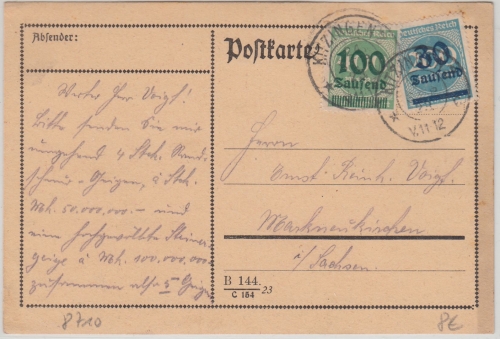 Absender:
Postkarte
KITZINGEN
Deutsches Reich
100
Tausend
30
Tausend
V. 11-12
Werter Herr Voigt!
Bitte senden Sie mir
umgehend 4 Stck.
Geigen, à Stck.
Mk. 50.000.000.- und
eine
geige à Mk. 100.000.000.-
zusammen also 5 Geigen
Herrn
Ernst Reinh. Voigt.
Markneukirchen
i/Sachsen.
B 144. 23
C 154
8710
8€